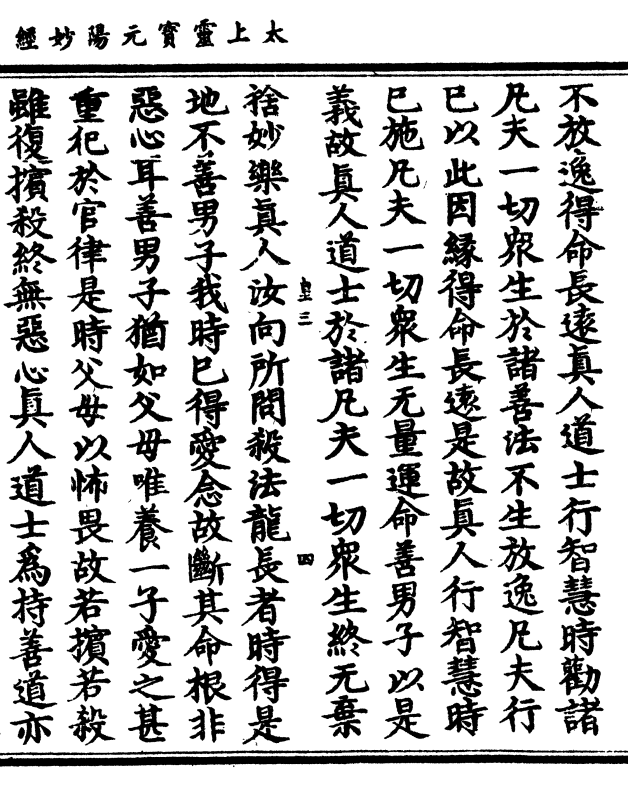 太上靈寳元陽妙經
不放逸得命長遠眞人道士行智慧時勸諸
凡夫一切眾生於諸善法不生放逸凡夫行
已以此因緣得命長遠是故眞人行智慧時
已施凡夫一切眾生无量運命善男子以是
義故眞人道士於諸凡夫一切眾生終无棄
皇三 四
捨妙樂眞人汝向所問殺法龍長者時得是
地不善男子我時已得愛念故斷其命根非
惡心耳善男子猶如父母唯養一子愛之甚
重犯於官律是時父母以怖畏故若擯若殺
雖復擯殺終無惡心眞人道士爲持善道亦